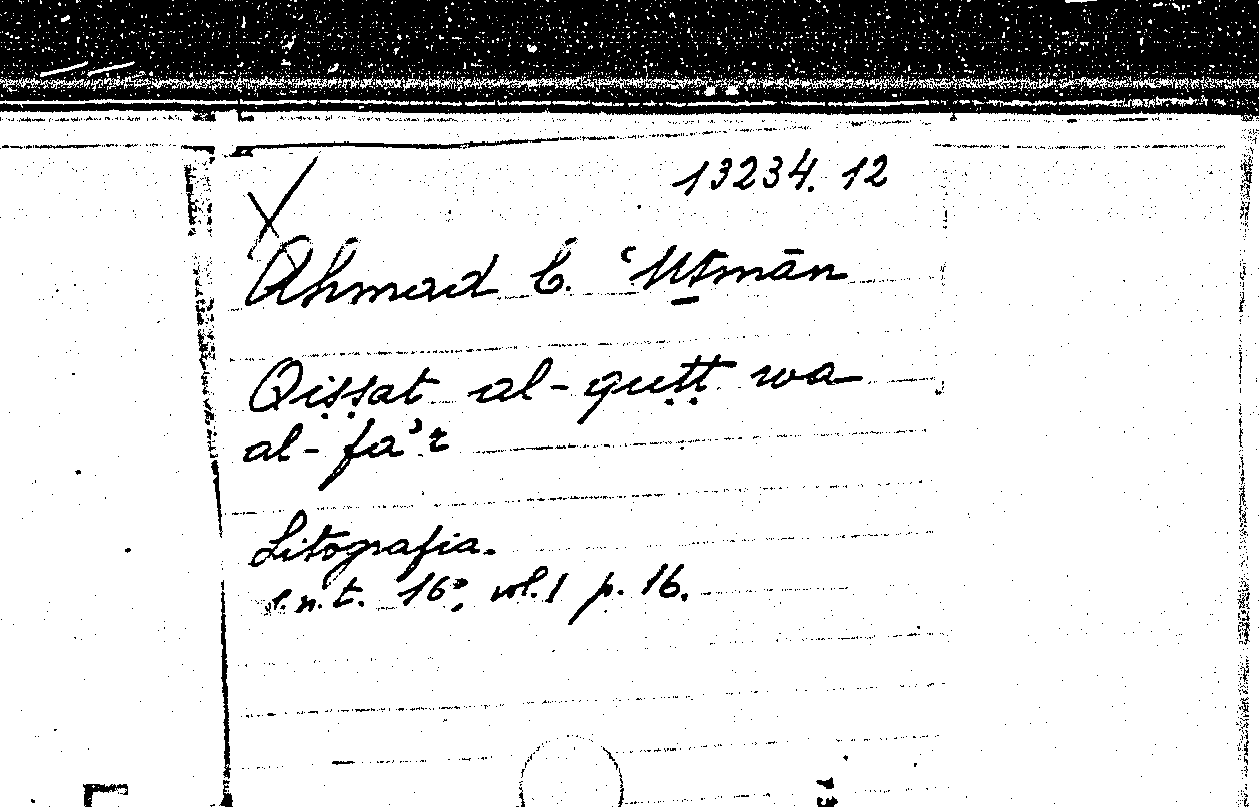 13234. 12
Ahmad b. ʿUṯmān
Qiṣṣat al-quṭṭ wa-
al-fa'r
Litografia.
s.n.t. 16°, vol. 1 p. 16.